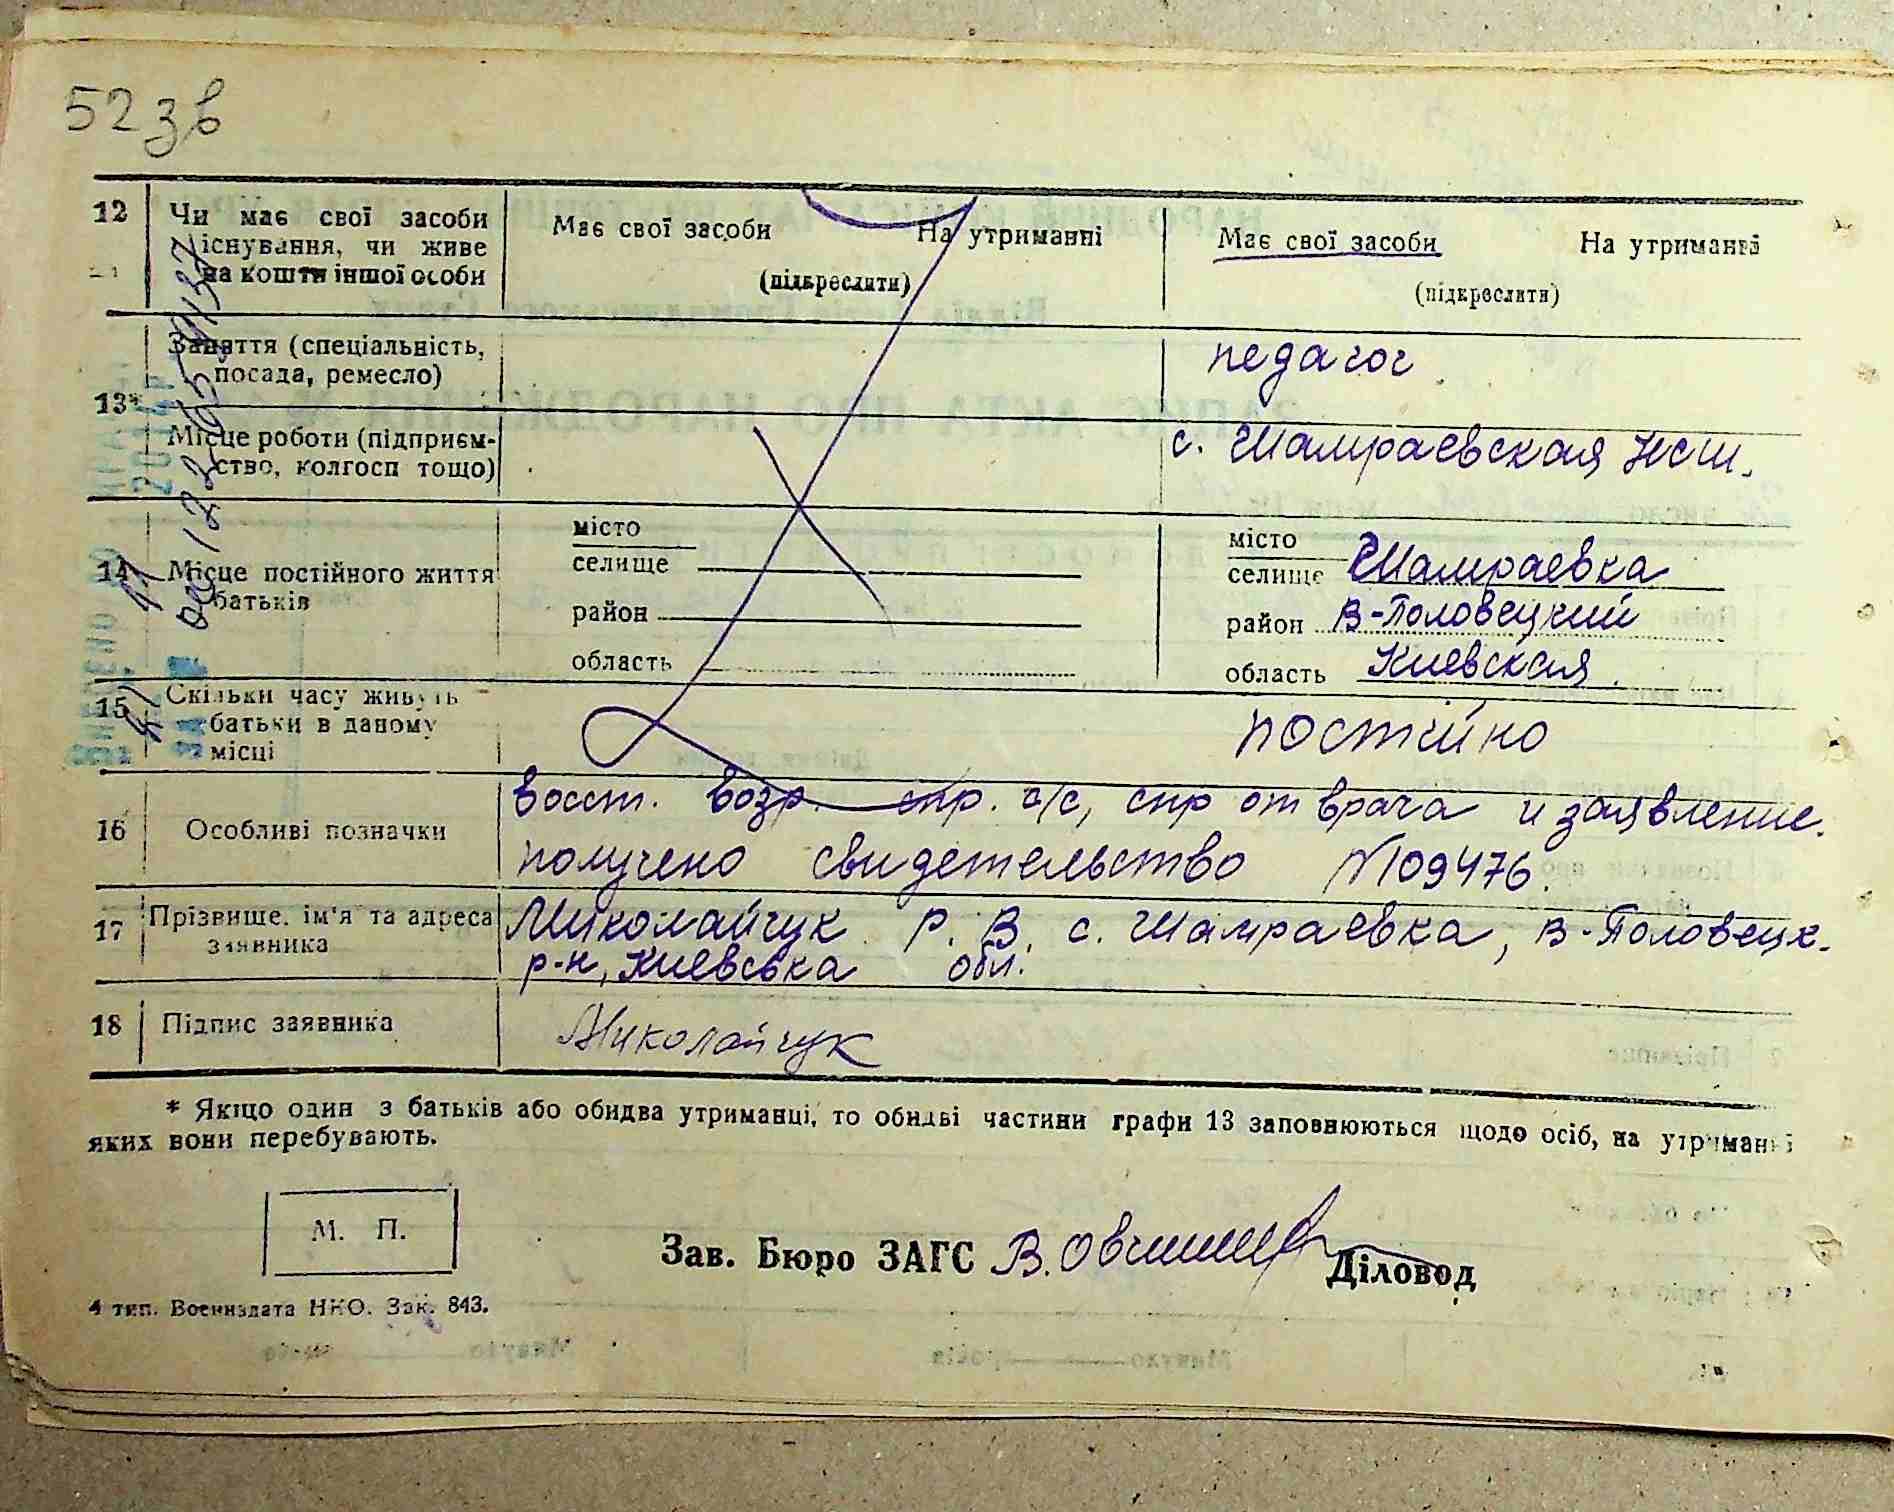 52 зв
12 Чи має свої засоби існування, чи живе на кошти іншої особи
Має свої засоби На утриманні
(підкреслити)
Має свої засоби На утриманні
(підкреслити)
13*
Заняття (спеціальність, посада, ремесло)
педагог
Місце роботи (підприємство, колгосп тощо)
с. Шамраевская НСШ.
14 Місце постійного життя батьків
місто
селище
район
область
місто
селище Шамраевка
район В-Половецкий
область Киевская
15 Скільки часу живуть батьки в даному місці
постійно
16 Особливі позначки
восст. возр. спр. с/с, спр от врача и заявление.
получено свидетельство N109476.
17 Прізвище, ім'я та адреса заявника
Миколайчук Р. В. с. Шамраевка, В-Половецк.
р-н, Киевська обл.
18 Підпис заявника
Миколайчук
* Якщо один з батьків або обидва утриманці, то обидві частини графи 13 заповнюються щодо осіб, на утриманні
яких вони перебувають.
М. П.
Зав. Бюро ЗАГС В. Діловод
4 тип. Воениздата НКО. Зак. 843.